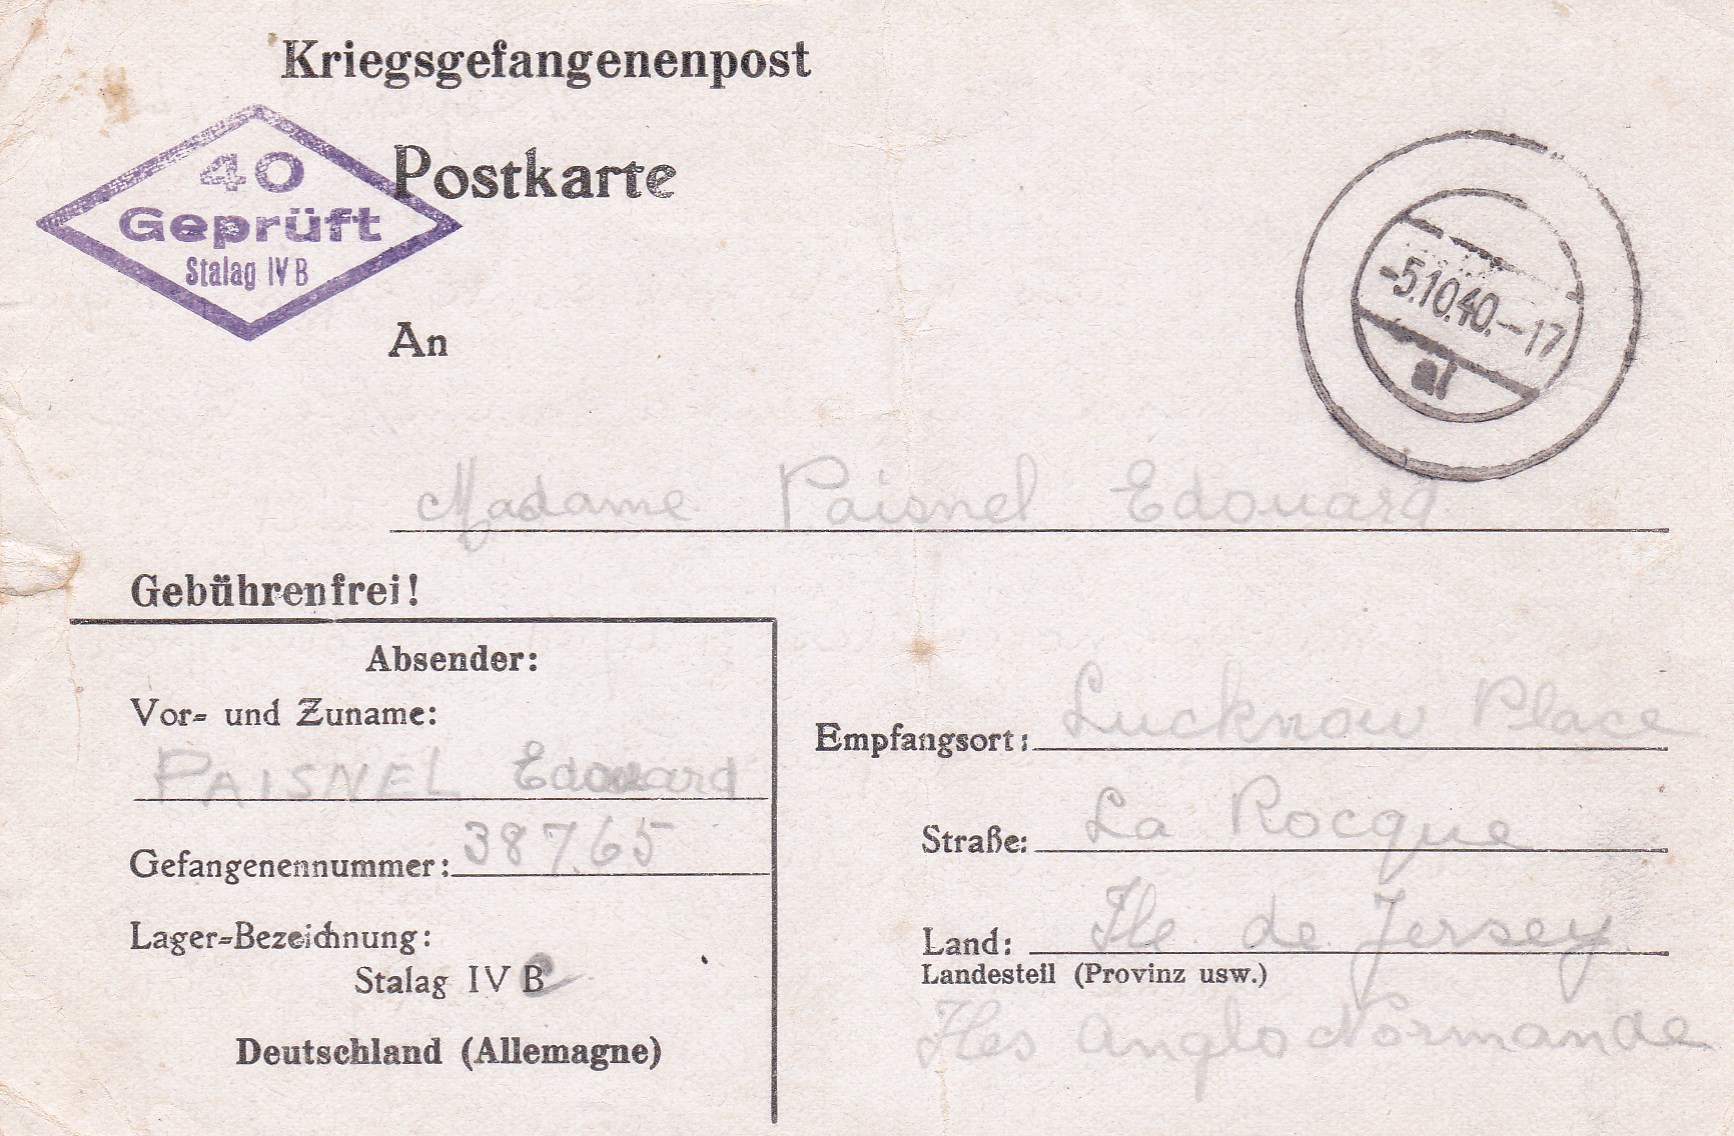 Kriegsgefangenenpost
40
Geprüft
Stalag IV B
Postkarte
-5.10.40.-17
al
An
Madame Paisnel Edouard
Gebührenfrei!
Absender:
Vor- und Zuname:
PAISNEL Edouard
Gefangenennummer: 38765
Lager-Bezeichnung:
Stalag IV C
Deutschland (Allemagne)
Empfangsort: Lucknow Place
Straße: La Rocque
Land: Ile de Jersey
Landesteil (Provinz usw.)
Iles Anglo Normande